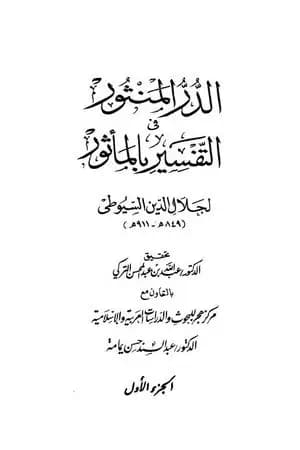 الدر المنثور
في
التفسير بالمأثور
لجلال الدين السيوطي
(٨٤٩هـ - ٩١١هـ)
تحقيق
الدكتور/عبد الله بن عبد المحسن التركي
بالتعاون مع
مركز هجر للبحوث والدراسات العربية والإسلامية
الدكتور/عبد السند حسن يمامة
الجزء الأول